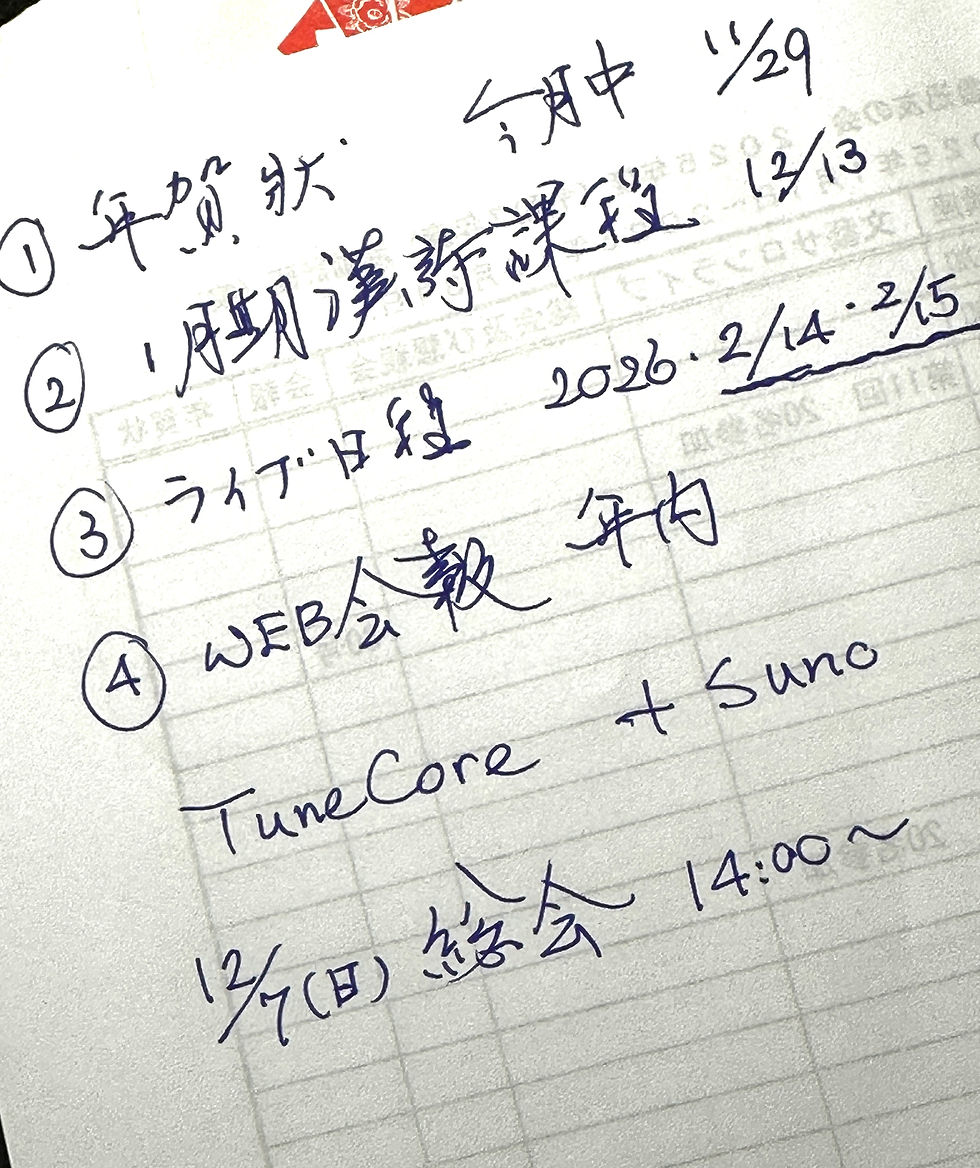 ① 年賀状 今月中 11/29
② 1月期漢詩課程 12/13
③ ライブ日程 2026. 2/14・2/15
④ WEB会報 年内
TuneCore + Suno
12/7(日) 総会 14:00〜